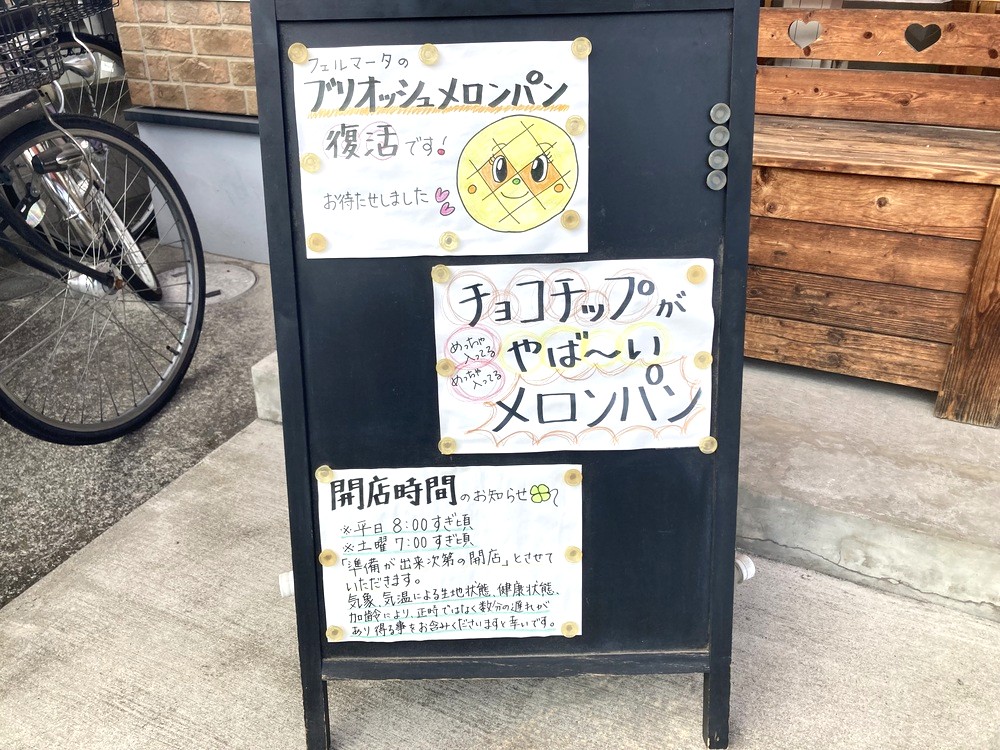 フェルマータの
ブリオッシュメロンパン
復活です!
お待たせしました
チョコチップが
めっちゃ
入ってる
やば〜い
めっちゃ
入ってる
メロンパン
開店時間のお知らせ
※平日 8:00すぎ頃
※土曜 7:00すぎ頃
「準備が出来次第の開店」とさせて
いただきます。
気象、気温による生地状態、健康状態、
加齢により、正時ではなく数分の遅れが
あり得る事をお含みくださいますと幸いです。